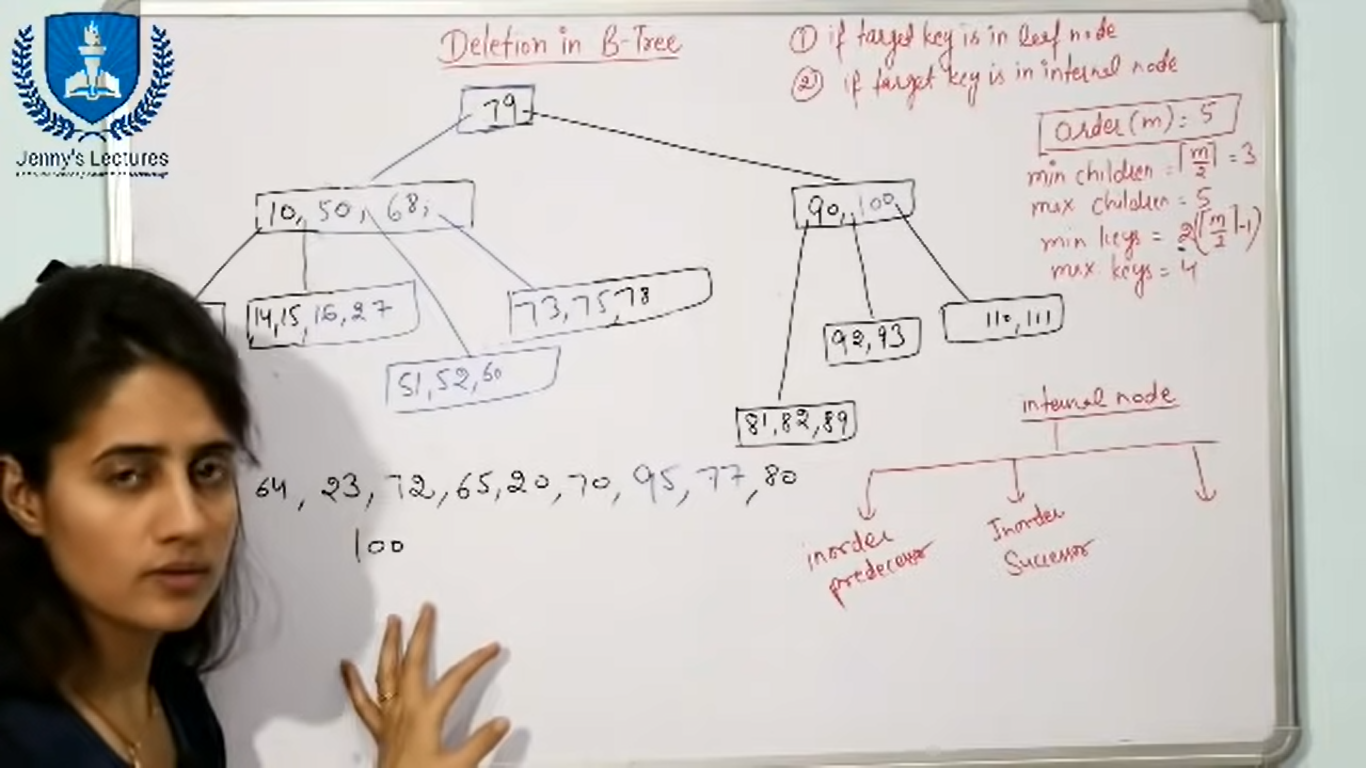 Jenny's Lectures
Deletion in B-Tree
① if target key is in leaf node
② if target key is in internal node
79
Order(m) = 5
min children = ⌈m/2⌉ = 3
max children = 5
min keys = 2(⌈m/2⌉-1)
max keys = 4
10, 50, 68,
90, 100
14,15,16,27
73,75,78
51,52,60
92,93
110,111
81,82,89
internal node
64, 23, 72, 65, 20, 70, 95, 77, 80
100
inorder
predecessor
Inorder
Successor